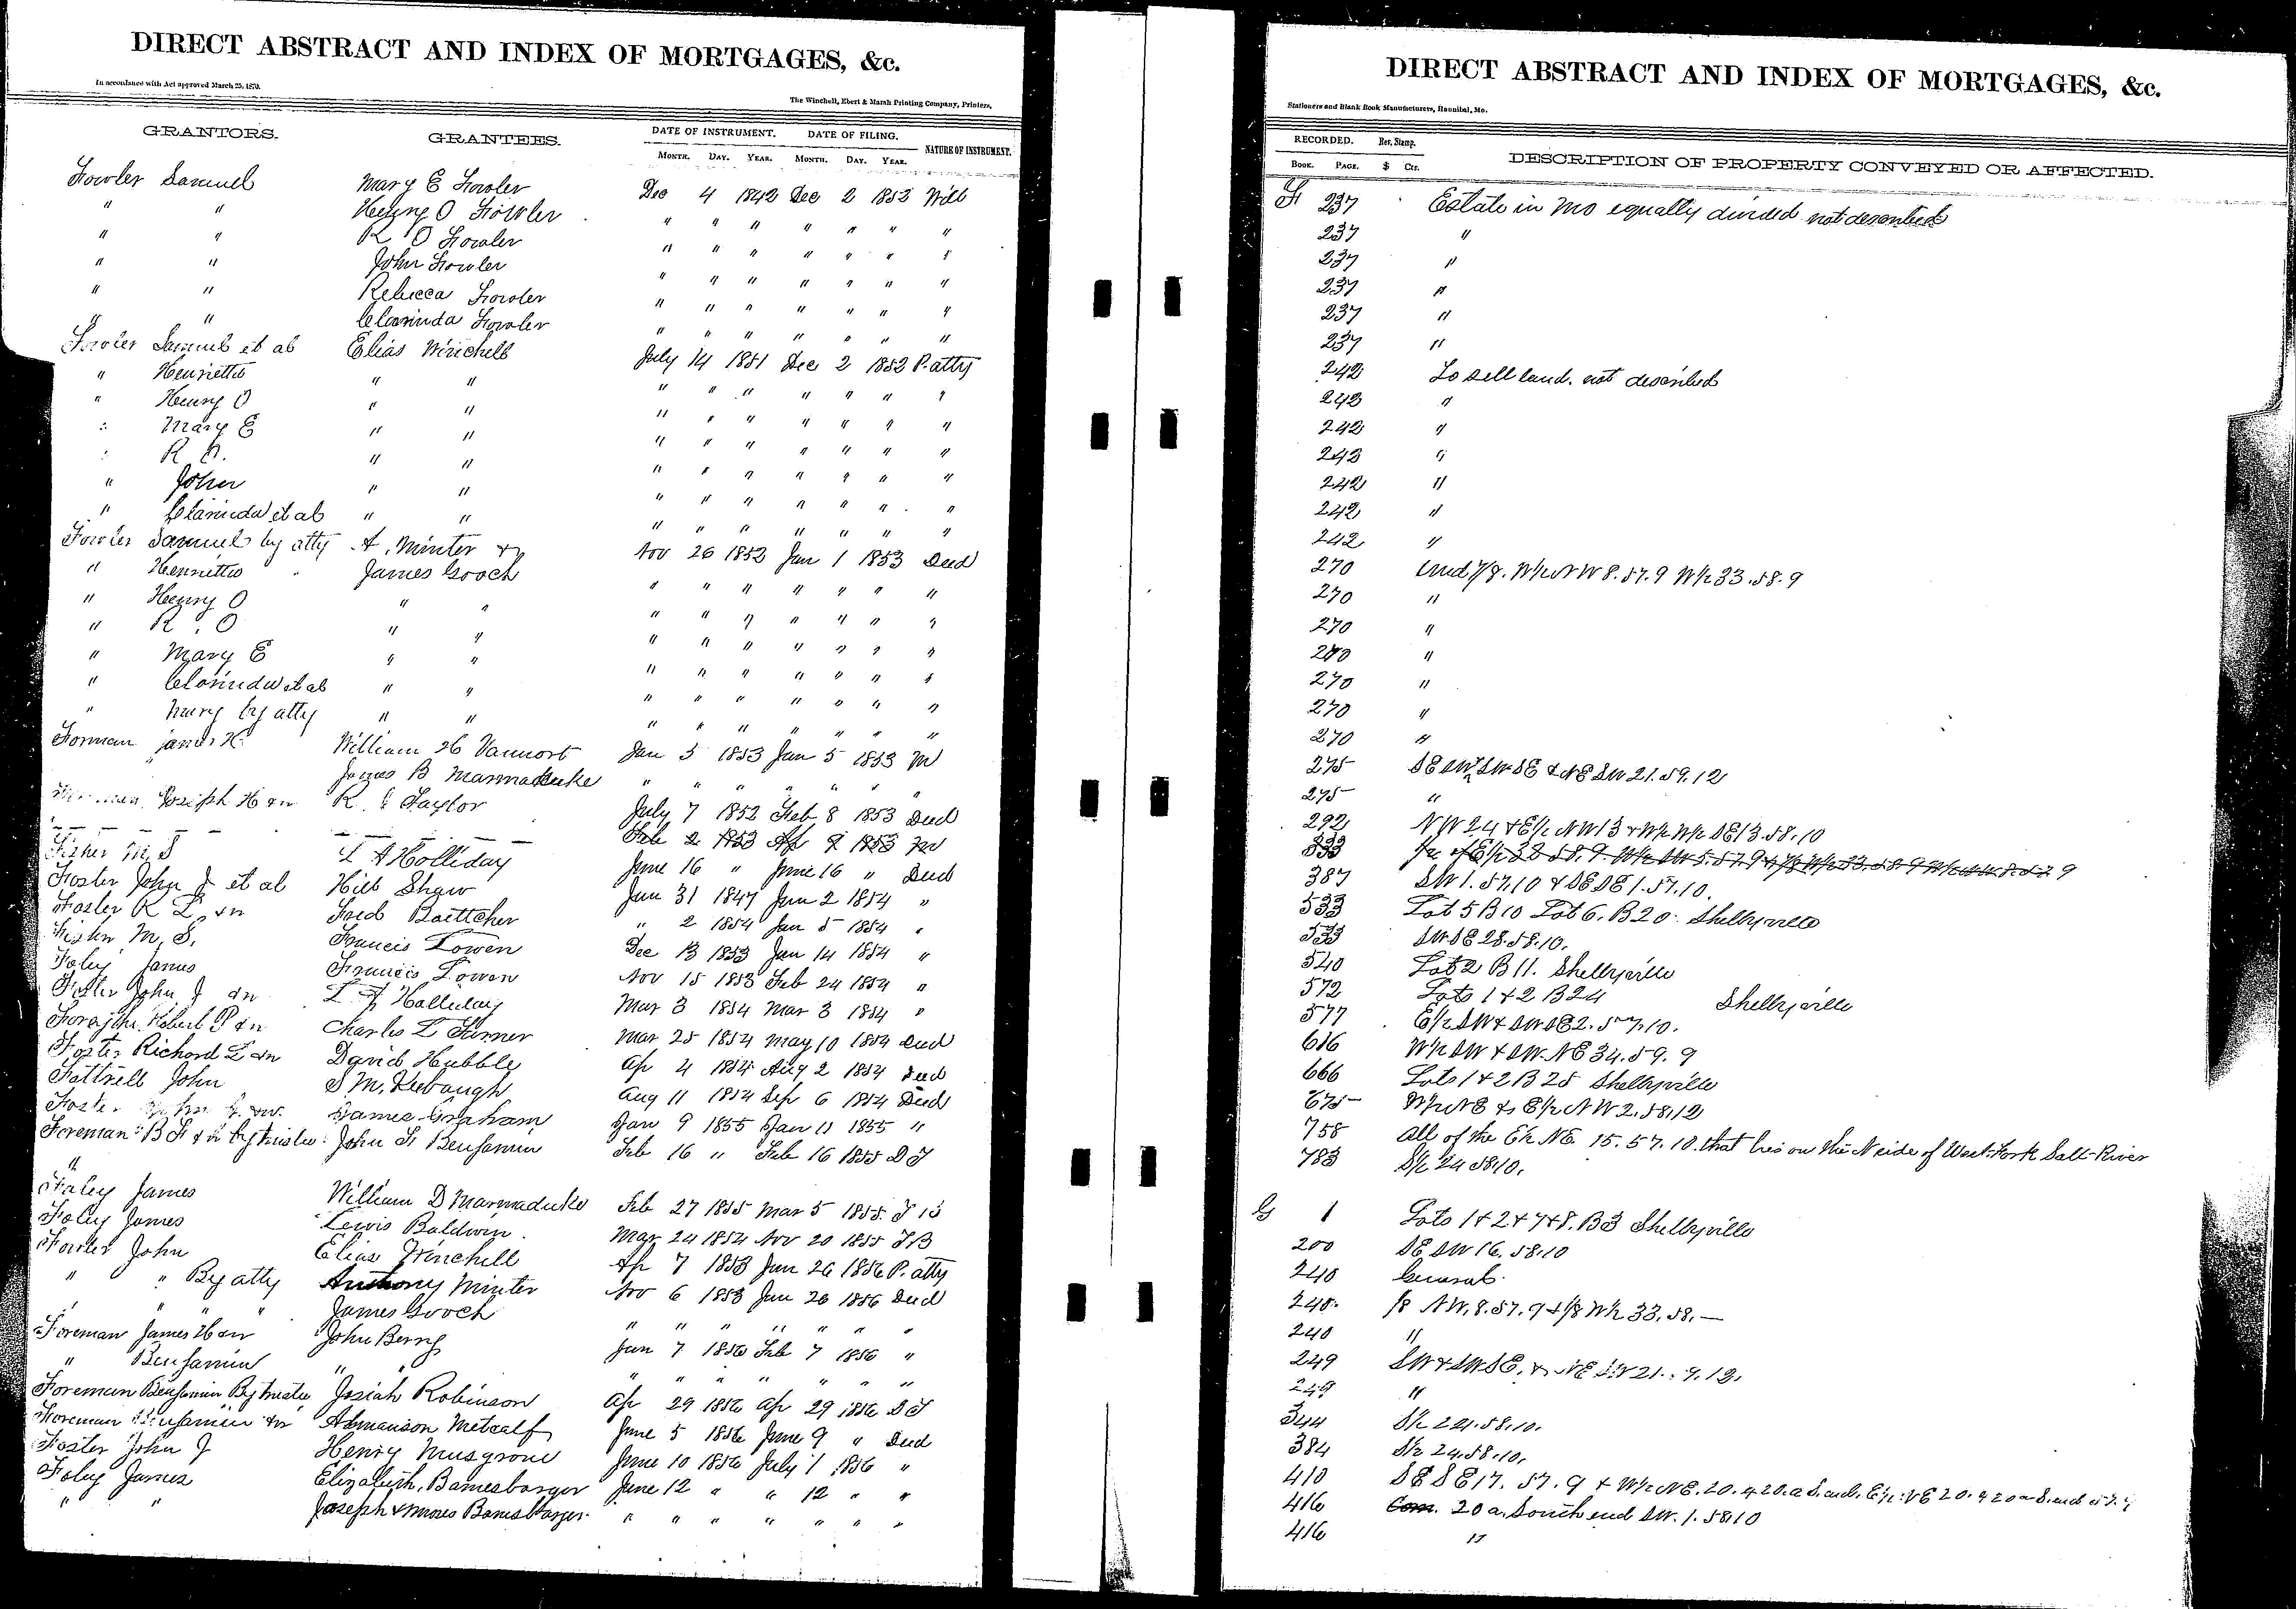 DIRECT ABSTRACT AND INDEX OF MORTGAGES, &c.
In accordance with Act approved March 25, 1870.
The Winchell, Ebert & Marsh Printing Company, Printers,
GRANTORS. GRANTEES. DATE OF INSTRUMENT. DATE OF FILING. NATURE OF INSTRUMENT.
MONTH. DAY. YEAR. MONTH. DAY. YEAR.
Fowler Samuel Mary E Fowler Dec 4 1842 Dec 2 1852 Will
" " Henry O Fowler " " " " " " "
" " R O Fowler " " " " " " "
" " John Fowler " " " " " " "
" " Rebecca Fowler " " " " " " "
" " Clarinda Fowler " " " " " " "
Fowler Samuel et al Elias Winchell July 14 1851 Dec 2 1852 P. atty
" Henrietta " " " " " " " " "
" Henry O " " " " " " " " "
" Mary E " " " " " " " " "
" R O. " " " " " " " " "
" John " " " " " " " " "
" Clarinda et al " " " " " " " " "
Fowler Samuel by atty A. Minter & Nov 26 1852 Jan 1 1853 Deed
" Henrietta James Gooch " " " " " " "
" Henry O " " " " " " " " "
" R. O " " " " " " " " "
" Mary E " " " " " " " " "
" Clarinda et al " " " " " " " " "
" Mary by atty " " " " " " " " "
Forman James H William H Vannort Jan 5 1853 Jan 5 1853 M
James B Marmaduke " " " " " "
Joseph H & w R. Taylor July 7 1852 Feb 8 1853 Deed
Feb 2 1853 Ap 9 1853 M
Fisher M. S T A Holliday June 16 " June 16 " Deed
Foster John J et al Hill Shaw Jan 31 1847 Jan 2 1854 "
Foster R L & w Fred Boettcher " 2 1854 Jan 5 1854 "
Fisher M. S. Francis Lowen Dec 13 1853 Jan 14 1854 "
Foley James Francis Lowen Nov 15 1853 Feb 24 1854 "
Foster John J & w T A Holliday Mar 3 1854 Mar 3 1854 "
Forsythe Robert P & w Charles L Turner Mar 25 1854 May 10 1854 Deed
Foster Richard L & w David Hubble Ap 4 1854 Aug 2 1854 Deed
Futtrell John S M. Aug 11 1854 Sep 6 1854 Deed
Foster John J. & w. James Graham Jan 9 1855 Jan 11 1855 "
Foreman B F & w by Trustee John F Benjamin Feb 16 " Feb 16 1855 D T
"
Foley James William D Marmaduke Feb 27 1855 Mar 5 1855
Foley James Lewis Baldwin Mar 24 1854 Nov 20 1855 T B
Fowler John Elias Winchell Ap 7 1853 Jan 26 1856 P. atty
" " By atty Anthony Minter Nov 6 1853 Jan 26 1856 Deed
" " " James Gooch " " " " " " "
Foreman James H & w John Berry Jan 7 1856 Feb 7 1856 "
" Benjamin " " " " " " " " "
Foreman Benjamin By Trustee Josiah Robinson Ap 29 1856 Ap 29 1856 D T
Foreman Benjamin & w Metcalf June 5 1856 June 9 " Deed
Foster John J Henry Musgrove June 10 1856 July 1 1856 "
Foley James Elizabeth Bamesbarger June 12 " " 12 " "
" " Joseph & Moses Bamesbarger " " " " " " "
DIRECT ABSTRACT AND INDEX OF MORTGAGES, &c.
Stationers and Blank Book Manufacturers, Hannibal, Mo.
RECORDED. Rev. Stamp. DESCRIPTION OF PROPERTY CONVEYED OR AFFECTED.
BOOK. PAGE. $ Cts.
F 237 Estate in Mo equally divided not described
237 "
237 "
237 "
237 "
237 "
242 To sell land. not described
242 "
242 "
242 "
242 "
242 "
242 "
270 Und 7/8. W½ NW 8. 57. 9 W½ 33. 58. 9
270 "
270 "
270 "
270 "
270 "
270 "
275 SE SW, SW SE & NE SW 21. 59. 12
275 "
292 NW 24 & E½ NW 13 & W½ W½ SE 13. 58. 10
333
387 SW 1. 57. 10 & SE SE 1. 57. 10.
533 Lot 5 B 10 Lot 6. B 20. Shelbyville
533 SW SE 28. 58. 10.
540 Lot 2 B 11. Shelbyville
572 Lots 1 & 2 B 24 Shelbyville
577 E½ SW & SW SE 2. 57. 10.
616 W½ SW & SW NE 34. 59. 9
666 Lots 1 & 2 B 25 Shelbyville
675 W½ NE & E½ NW 2. 58. 12
758 All of the E½ NE 15. 57. 10. that lies on the N side of West Fork Salt River
783 S½ 24 58. 10.
G 1 Lots 1 & 2 & 7 & 8. B 3 Shelbyville
200 SE SW 16. 58. 10
240 General.
240. 1/8 NW. 8. 57. 9 & 1/8 W½ 33. 58. —
240 "
249 SW & SW SE. & NE SW 21. 9. 12.
249 "
344 S½ 24. 58. 10.
384 S½ 24. 58. 10.
410 SE SE 17. 57. 9 & W½ NE. 20.
416 Com. 20 a. South end SW. 1. 58. 10
416 "